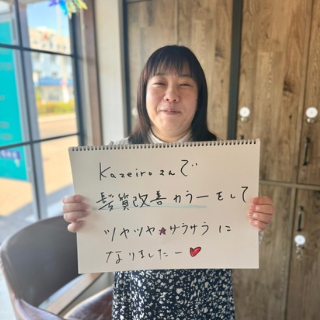 Kazeiroさんで
髪質改善カラーをして
ツヤツヤ★サラサラに
なりましたー♥